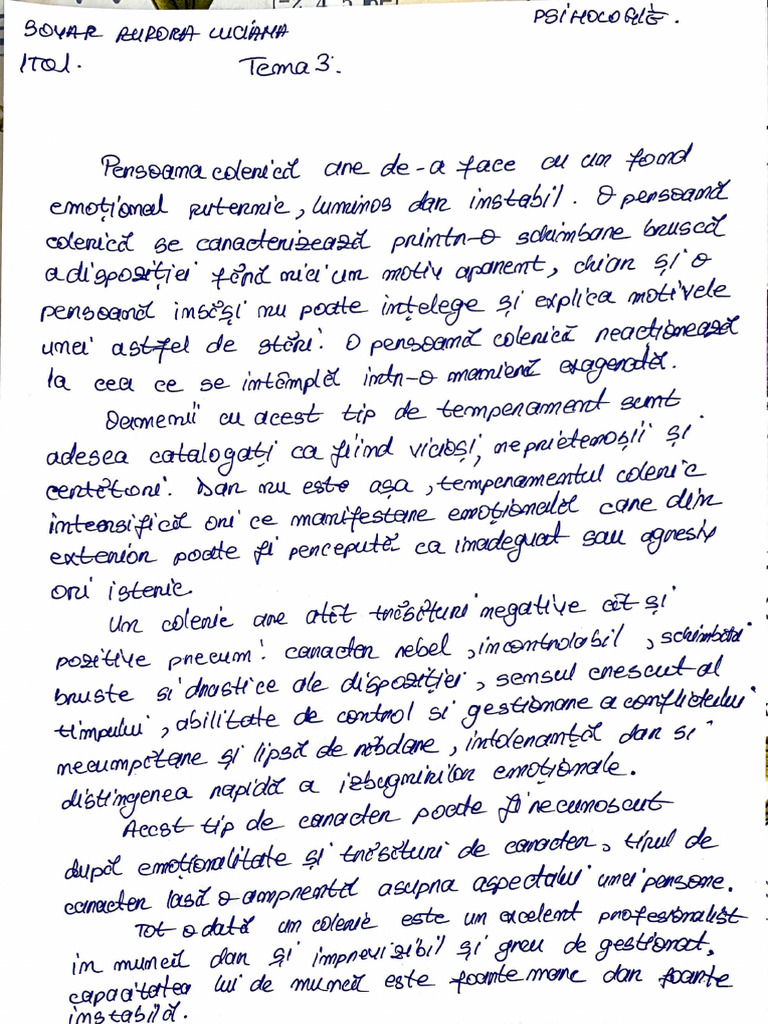 PSIHOLOGIE.
BOYAR AURORA LUCIANA
Tema 3.
Persoana colerică are de-a face cu un fond
emoțional puternic, luminos dar instabil. O persoană
colerică se caracterizează printr-o schimbare bruscă
a dispoziției fără nici un motiv aparent, chiar și o
persoană însăși nu poate înțelege și explica motivele
unei astfel de stări. O persoană colerică reacționează
la cea ce se întâmplă intr-o manieră exagerată.
Oamenii cu acest tip de temperament sunt
adesea catalogați ca fiind vicioși, neprietenoșii și
certători. Dar nu este așa, temperamentul coleric
intensifică ori ce manifestare emoțională care din
exterior poate fi percepută ca inadequat sau agresiv
ori isteric.
Um coleric are atât trăsături negative cât și
pozitive precum: caracter rebel, incontrolabil, schimbări
bruste si drastice ale dispoziției, sensul crescut al
timpului, abilitate de control si gestionare a conflictului
necumpătare și lipsă de răbdare, intoleranță dar si
distingerea rapidă a izbugnirilor emoționale.
Acest tip de caracter poate fi recunoscut
după emoționalitate și trăsături de caracter, tipul de
caracter lasă o amprentă asupra aspectului unei persone.
Tot o dată um coleric este un excelent profesionalist
în muncă dar și imprevizibil și greu de gestionat,
capacitatea lui de muncă este foarte mare dar foarte
instabilă.